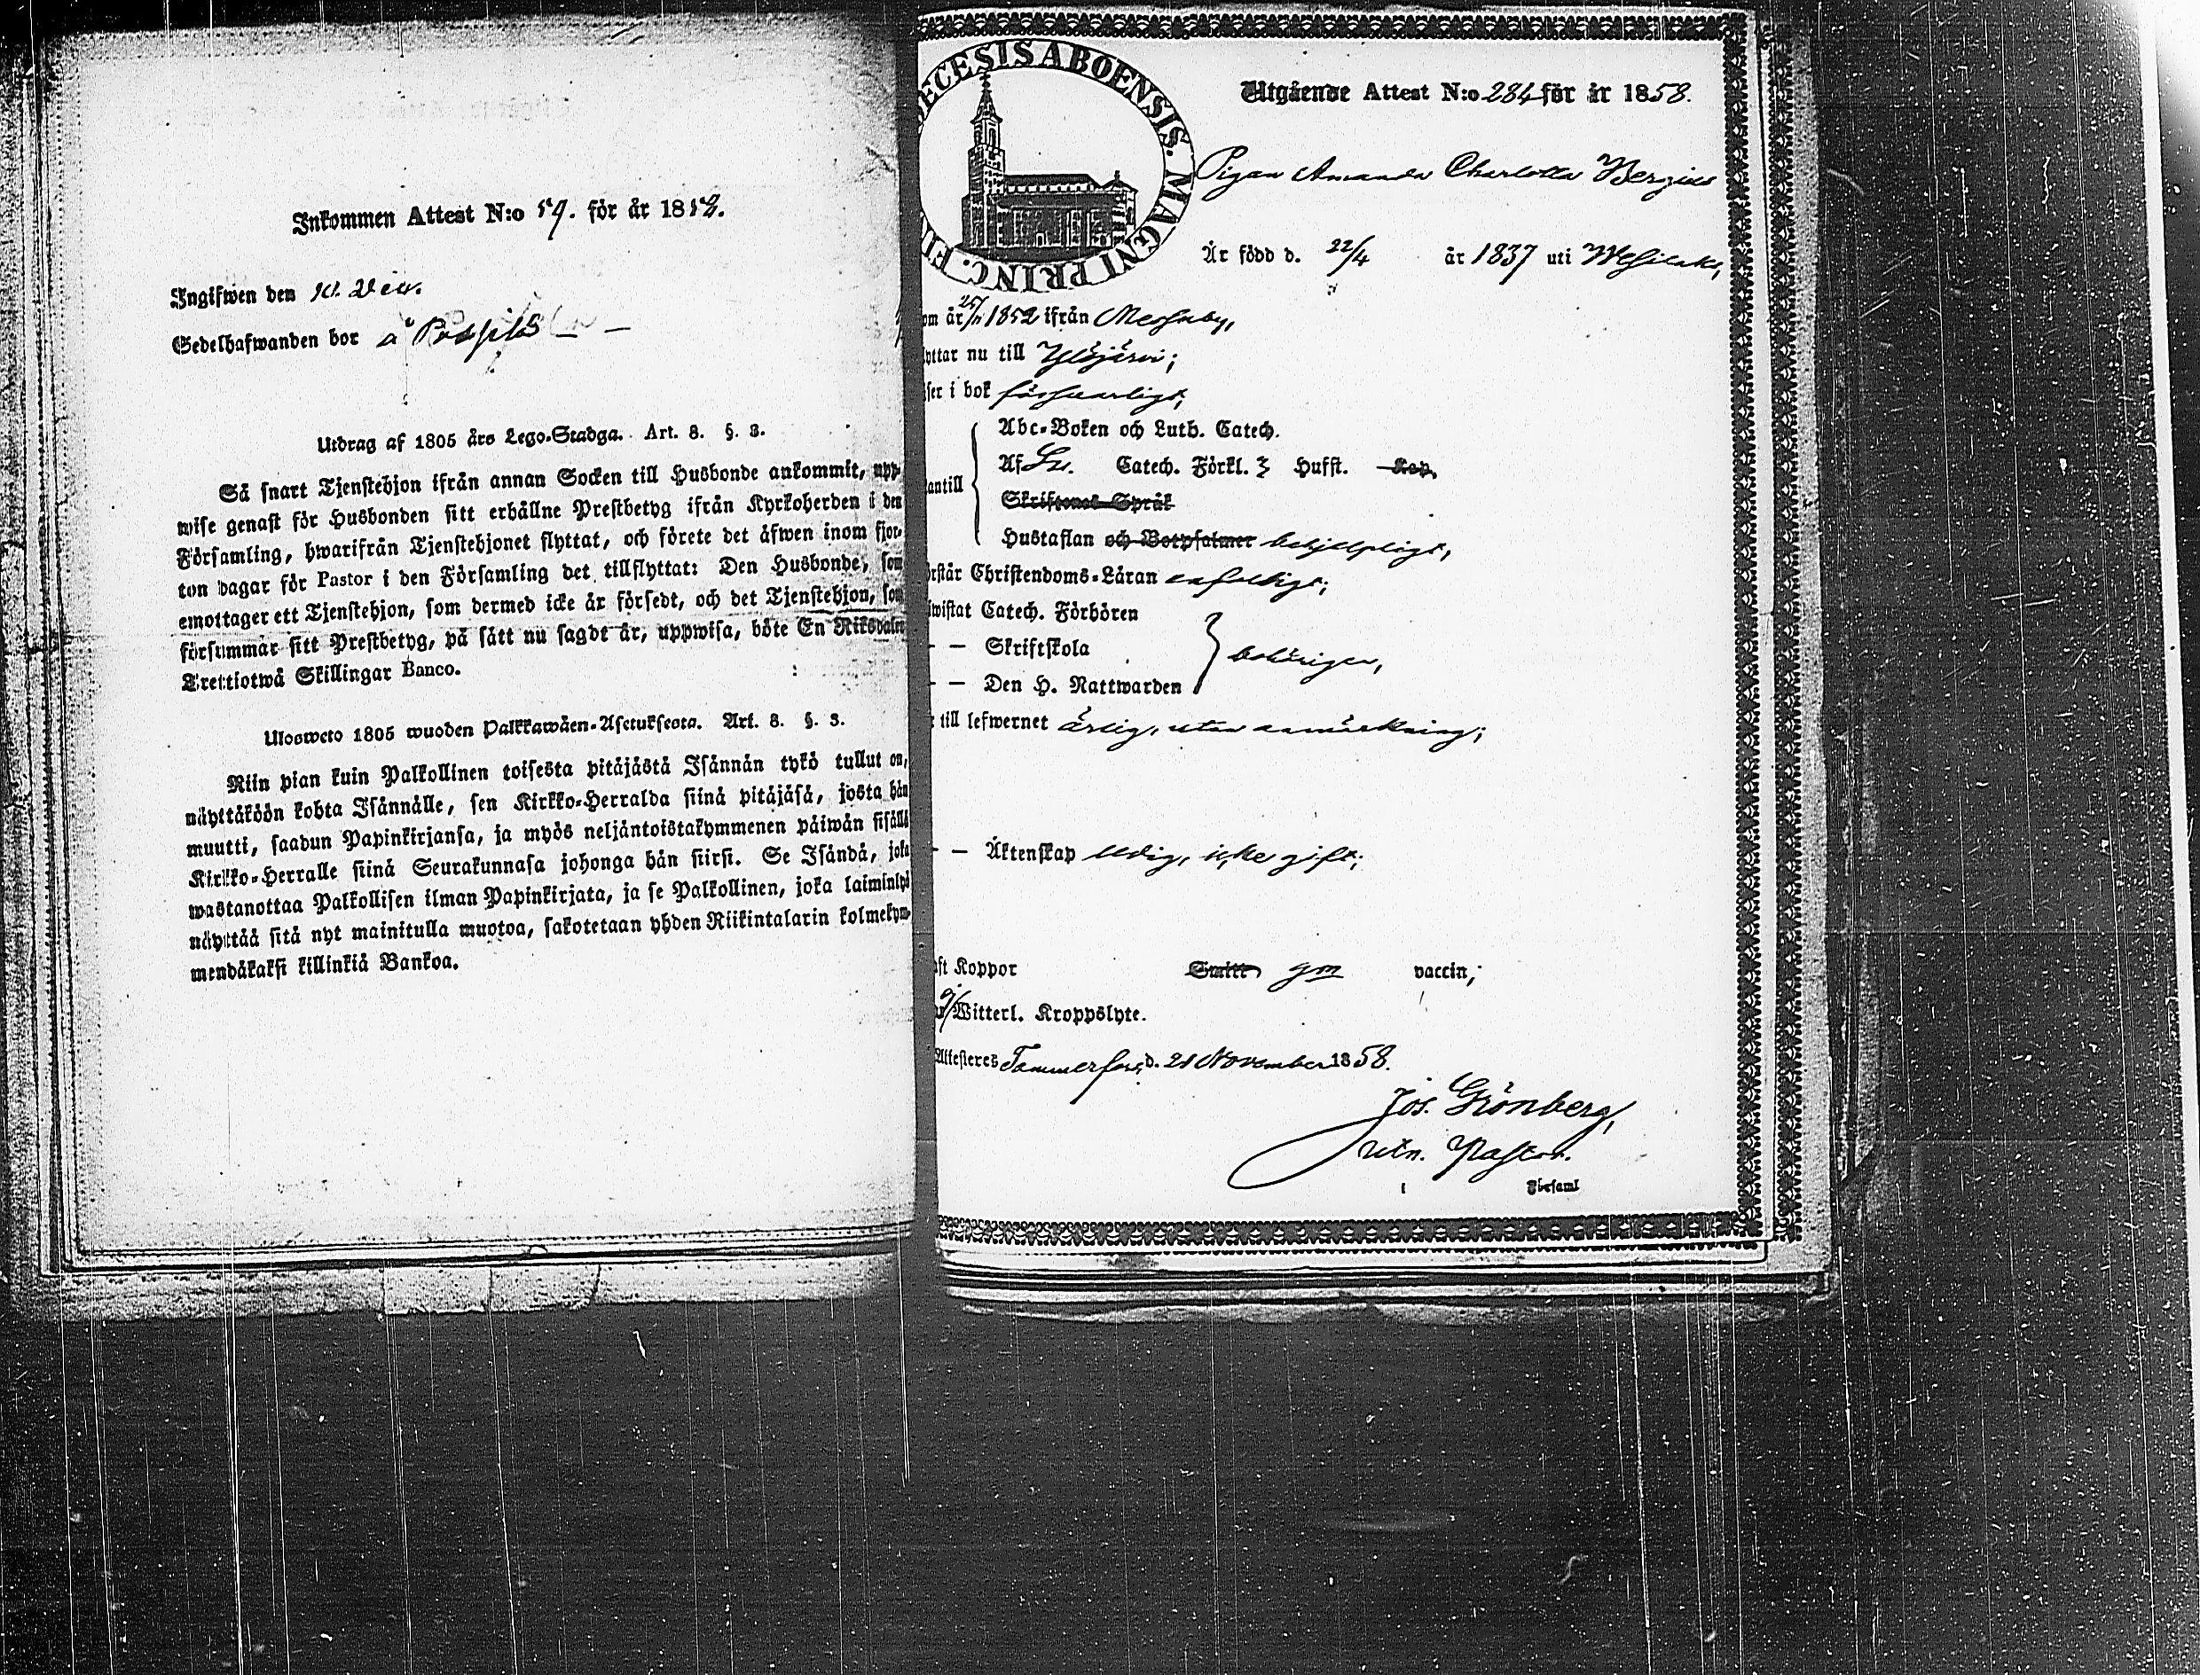 Inkommen Attest N:o 59. för år 1858.
Ingifwen den 10. Dec.
Sedelhafwanden bor å
Utdrag af 1805 års Lego-Stadga. Art. 8. §. 3.
Så snart Tjenstehjon ifrån annan Socken till Husbonde ankommit, upp-
wise genast för Husbonden sitt erhållne Prestbetyg ifrån Kyrkoherden i den
Församling, hwarifrån Tjenstehjonet flyttat, och förete det äfwen inom fjor-
ton dagar för Pastor i den Församling det tillflyttat: Den Husbonde, som
emottager ett Tjenstehjon, som dermed icke är försedt, och det Tjenstehjon, som
försummar sitt Prestbetyg, på sätt nu sagdt är, uppwisa, böte En Riksdaler
Trettiotwå Skillingar Banco.
Ulosweto 1805 wuoden Palkkawäen-Asetuksesta. Art. 8. §. 3.
Niin pian kuin Palkollinen toisesta pitäjästä Isännän tykö tullut on,
näyttäköön kohta Isännälle, sen Kirkko-Herralda siinä pitäjäsä, josta hän
muutti, saadun Papinkirjansa, ja myös neljäntoistakymmenen päiwän sisällä
Kirkko-Herralle siinä Seurakunnasa johonga hän siirsi. Se Isändä, joka
wastanottaa Palkollisen ilman Papinkirjata, ja se Palkollinen, joka laiminlyö
näyttää sitä nyt mainitulla muotoa, sakotetaan yhden Riikintalarin kolmekym-
mendäkaksi killinkiä Bankoa.
ECESIS ABOENSIS. MAGNI PRINC. FI
Utgående Attest N:o 284 för år 1858.
Pigan Amanda Charlotta Bergius
Är född d. 22/4 år 1837 uti Wesilaks,
om år 25/11 1852 ifrån Messuby,
yttar nu till Ylöjärvi;
ser i bok försvarligt,
Abc-Boken och Luth. Catech.
Af Sv. Catech. Förkl. Hufst. Kap.
antill
Skriftenes Språk
Hustaflan och Botpsalmer behjelpligt,
rstår Christendoms-Läran enfaldigt;
iwistat Catech. Förhören
- - Skriftskola behörigen,
- - Den H. Nattwarden
till lefwernet ärlig, utan anmärkning;
- - Äktenskap ledig, icke gift;
ft Koppor Smitt gm vaccin;
Witterl. Kroppslyte.
Attesteres Tammerfors, d. 21 November 1858.
Jos. Grönberg,
utn. Pastor.
i Församl